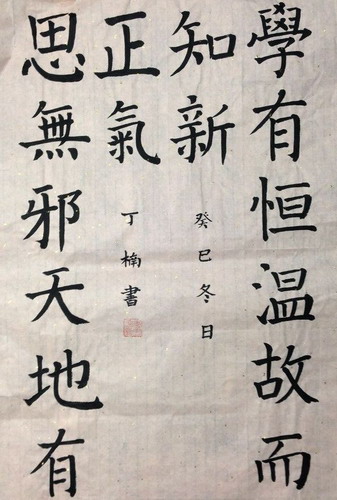 學有恒温故而
知新
癸巳冬日
思無邪天地有
正氣
丁楠書